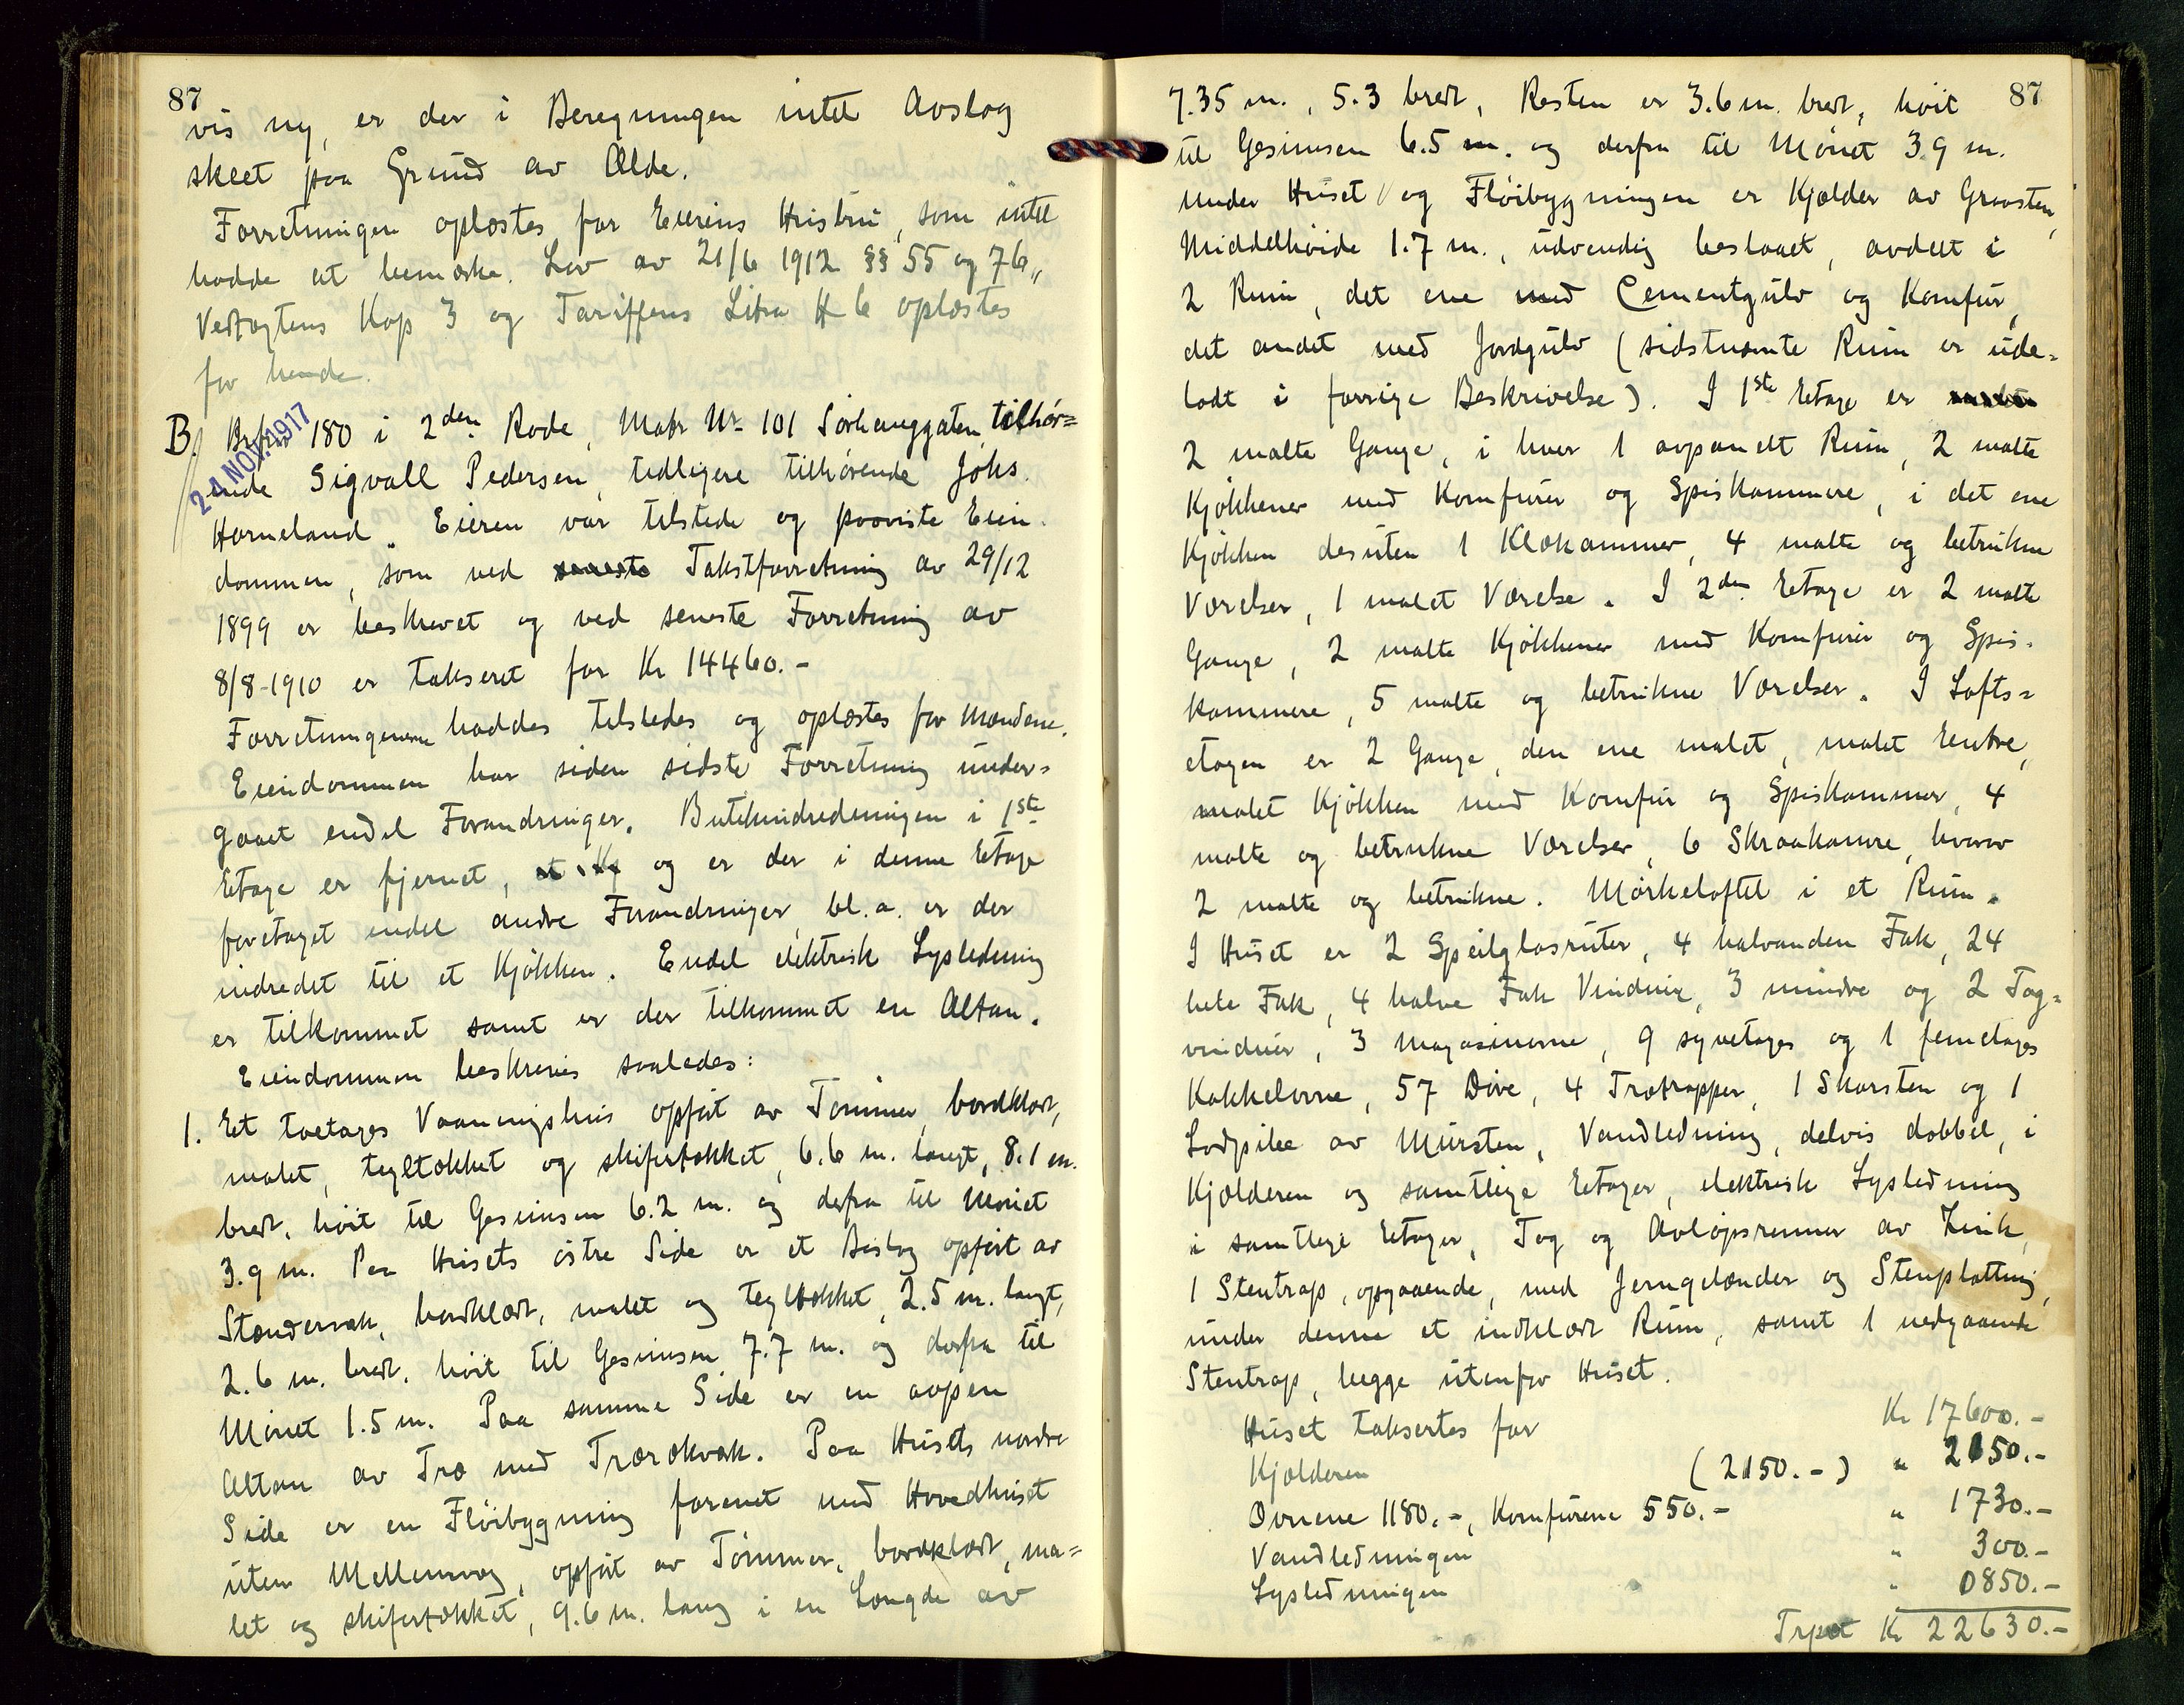 87
vis ny, er der i Beregningen intet Avslag
skeet paa Grund av Ælde.
Forretningen oplæstes for Eierens Hustru, som intet
hadde at bemærke. Lov av 21/6 1912 §§ 55 og 76,,
Vedtægtens Kap 3 og Tariffens Litra H 6 oplæstes
for hende.
B. 180 i 2den Rode, Matr Nr 101 Sørhauggaten, tilhør=
24 NOV. 1917
ende Sigvall Pedersen, tidligere tilhørende Johs.
Horneland. Eieren var tilstede og paaviste Eien-
dommen, som ved seneste Takstforretning av 29/12
1899 er beskrevet og ved seneste Forretning av
8/8-1910 er takseret for Kr 14460.-
Forretningerne haddes tilstedes og oplæstes for Mændene.
Eiendommen har siden sidste Forretning under=
gaaet endel Forandringer. Butikindredningen i 1ste
Etage er fjernet, og er der i denne Etage
foretaget endel andre Forandringer, bl.a. er der
indredet til et Kjøkken. Endel elektrisk Lysledning
er tilkommet samt er der tilkommet en Altan.
Eiendommen beskrives saaledes:
1. Et toetages Vaaningshus opført av Tømmer, bordklædt,
malet, tegltækket og skifertækket, 6.6 m. langt, 8.1 m.
bredt, høit til Gesimsen 6.2 m. og derfra til Mønet
3.9 m. Paa Husets østre Side er et Bislag opført av
Stænderverk, bordklædt, malet og tegltækket, 2.5 m. langt,
2.6 m. bredt, høit til Gesimsen 7.7 m. og derfra til
Mønet 1.5 m. Paa samme Side er en aapen
Altan av Træ med Trærækverk. Paa Husets nordre
Side er en Fløibygning forenet med Hovedhuset
uten Mellemvæg, opført av Tømmer, bordklædt, ma=
let og skifertækket, 9.6 m. lang i en Længde av
87
7.35 m., 5.3 bredt, Resten er 3.6 m. bredt, høit
til Gesimsen 6.5 m. og derfra til Mønet 3.9 m.
Under Huset og Fløibygningen er Kjælder av Graasten,
Middelhøide 1.7 m., udvendig beslaaet, avdelt i
2 Rum, det ene med Cementgulv og Komfur,
det andet med Jordgulv (sidstnævnte Rum er ude=
ladt i forrige Beskrivelse). I 1ste Etage er
2 malte Gange, i hver 1 avpanelt Rum, 2 malte
Kjøkkener med Komfurer og Spiskammere, i det ene
Kjøkken desuten 1 Klækammer, 4 malte og betrukne
Værelser, 1 malet Værelse. I 2den Etage er 2 malte
Gange, 2 malte Kjøkkener med Komfurer og Spis-
kammere, 5 malte og betrukne Værelser. I Lofts=
etagen er 2 Gange, den ene malet, malet Entre,
malet Kjøkken med Komfur og Spiskammer, 4
malte og betrukne Værelser, 6 Skraakamre, hvorav
2 malte og betrukne. Mørkeloftet i et Rum.
I Huset er 2 Speilglasruter, 4 halvanden Fak, 24
hele Fak, 4 halve Fak Vinduer, 3 mindre og 2 Tag=
vinduer, 3 Magasinovne, 9 syvetages og 1 femetages
Kakkelovne, 57 Døre, 4 Trætrapper, 1 Skorsten og 1
Lodpibe av Mursten, Vandledning, delvis dobbel, i
Kjælderen og samtlige Etager, elektrisk Lysledning
i samtlige Etager, Tag og Avløpsrenner av Zink,
1 Stentrap, opgaaende, med Jerngelænder og Stenplatting,
under denne et indklædt Rum, samt 1 nedgaaende
Stentrap, begge utenfor Huset.
Huset takseres for Kr 17600.-
Kjælderen (2150.-) " 2150.-
Ovnene 1180.-, Komfurene 550.- " 1730.-
Vandledningen " 300.-
Lysledningen " 0850.-
Kr 22630.-